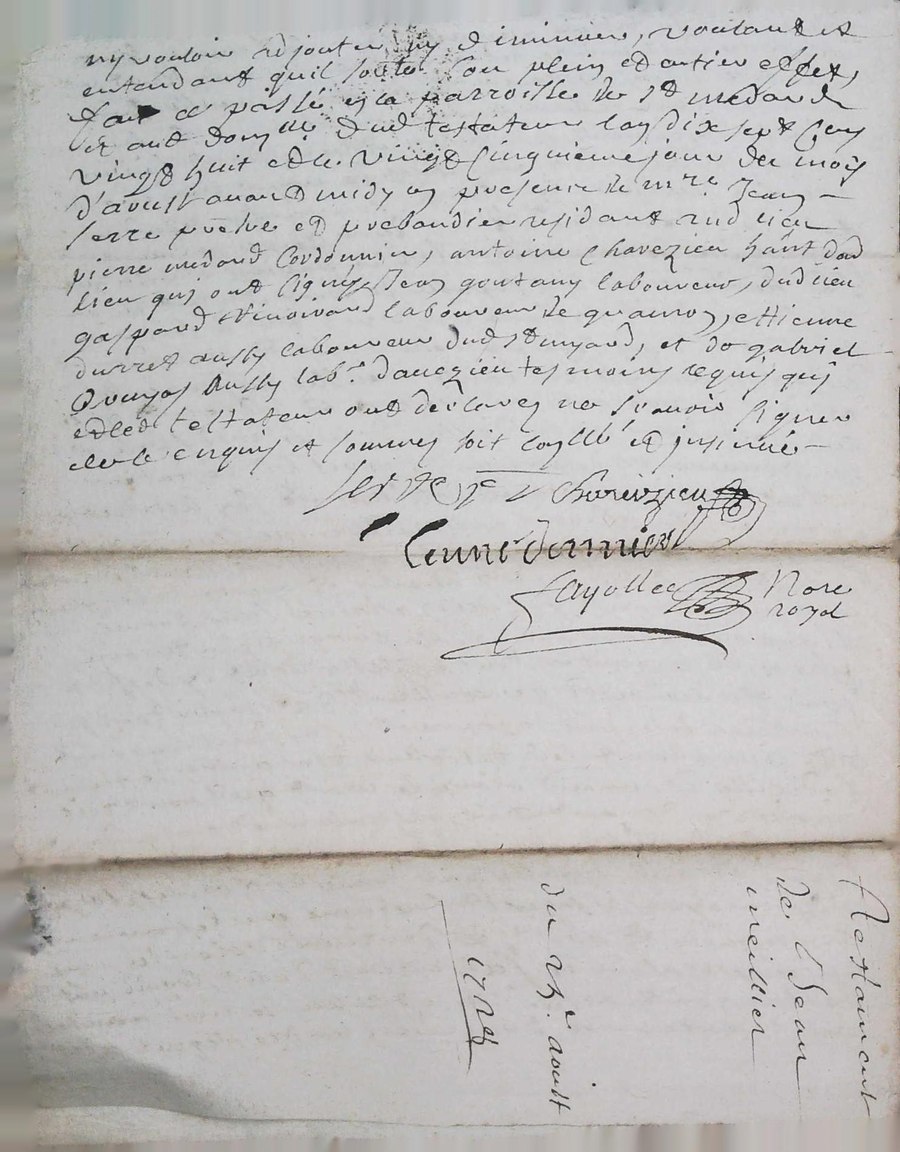 ny vouloir adjouter ny diminuer, voulant et
entendant quil sorte son plein et antier effet,
fait et passé en la parroisse de St medard
et aud dom.lle dud testateur lan dix sept cens
vingt huit et le vingt cinquieme jour du mois
d'aoust avant midy en presence de mre Jean
serre prebtre et prebandier residant aud lieu
pierre medard Cordonnier, antoine Chavezieu hant dud
lieu quj ont signés, Jean goutany laboureur, dud lieu
gaspard laboureur de, ettienne
durret aussy laboureur dud St, et de gabriel
aussy lab.r temoins requis quj
et led testateur ont déclarez ne scavoir signer
de ce enquis et sommes soit et insinué
Serre
Fayolle Nore
royal
Testament
de S Jean
meillier
du 25.e aoust
1728